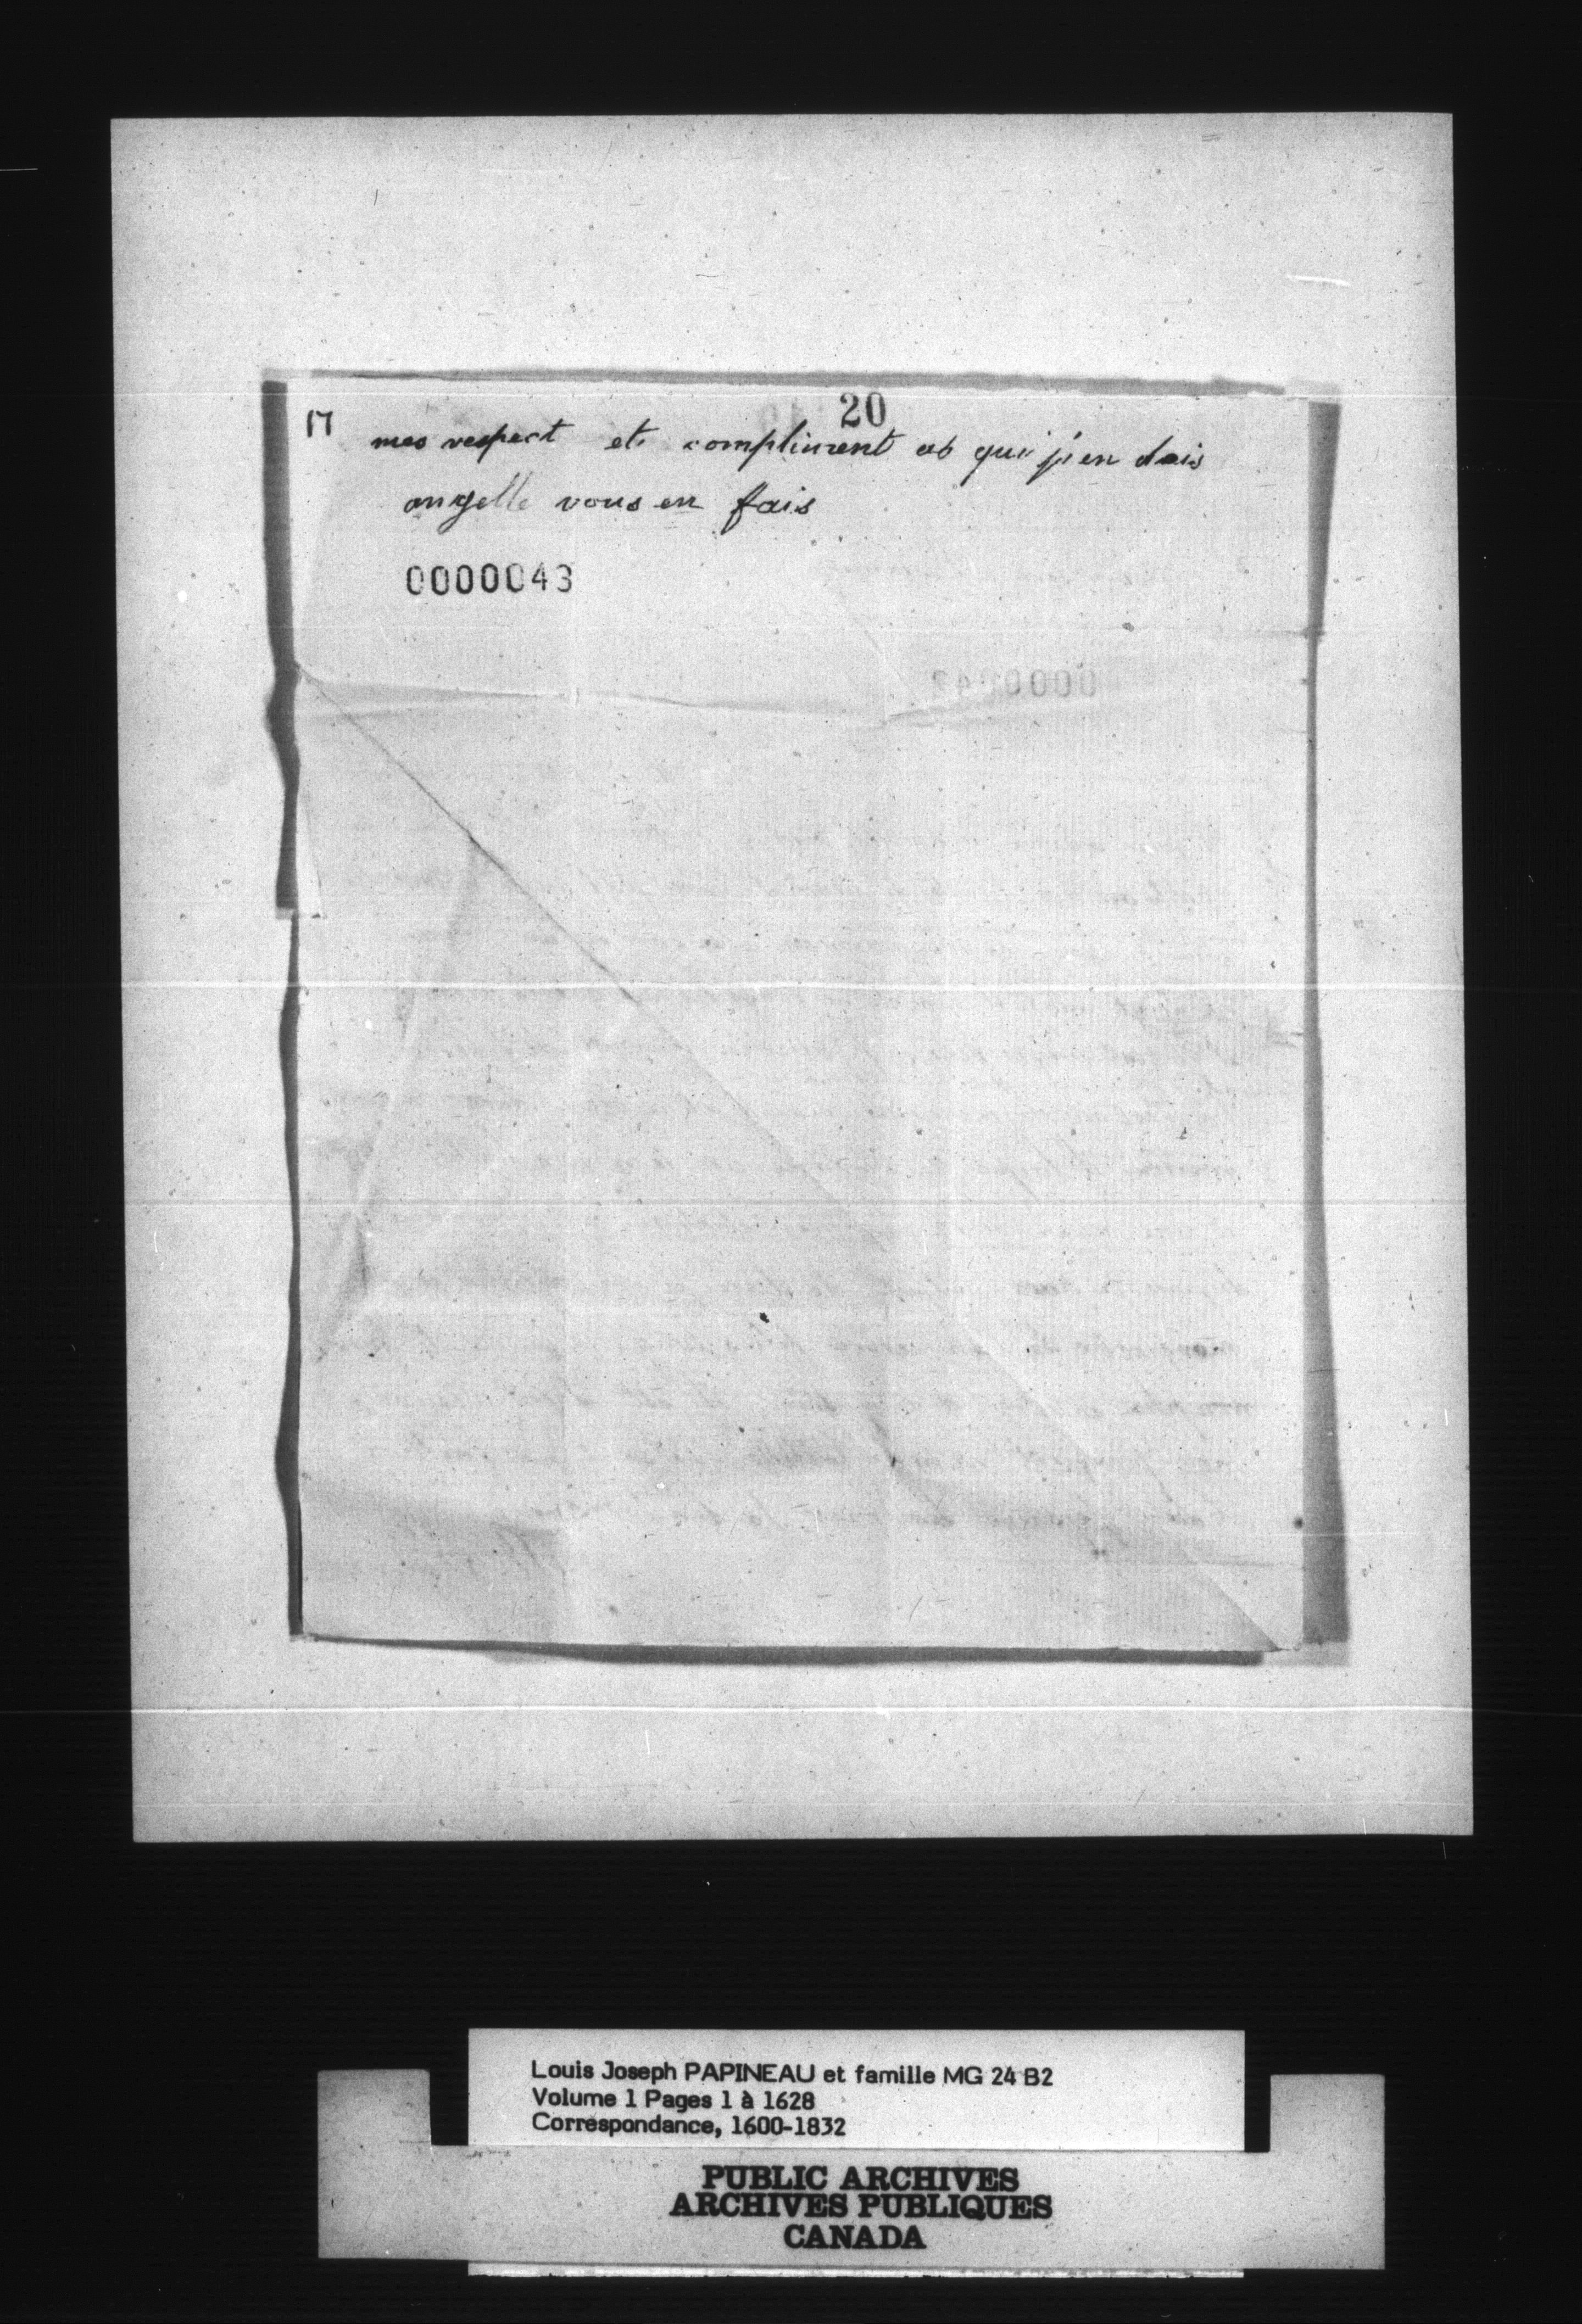 20
17
mes respect et compliment ab qui j'en dois
angelle vous en fais
0000043
Louis Joseph PAPINEAU et famille MG 24 B2
Volume 1 Pages 1 à 1628
Correspondance, 1600-1832
PUBLIC ARCHIVES
ARCHIVES PUBLIQUES
CANADA